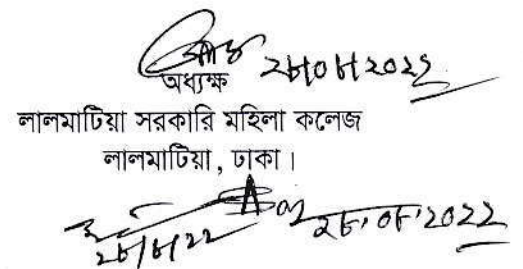 ২৮।০৮।২০২২
অধ্যক্ষ
লালমাটিয়া সরকারি মহিলা কলেজ
লালমাটিয়া, ঢাকা।
২৮/৮/২২
২৮.০৮.২০২২